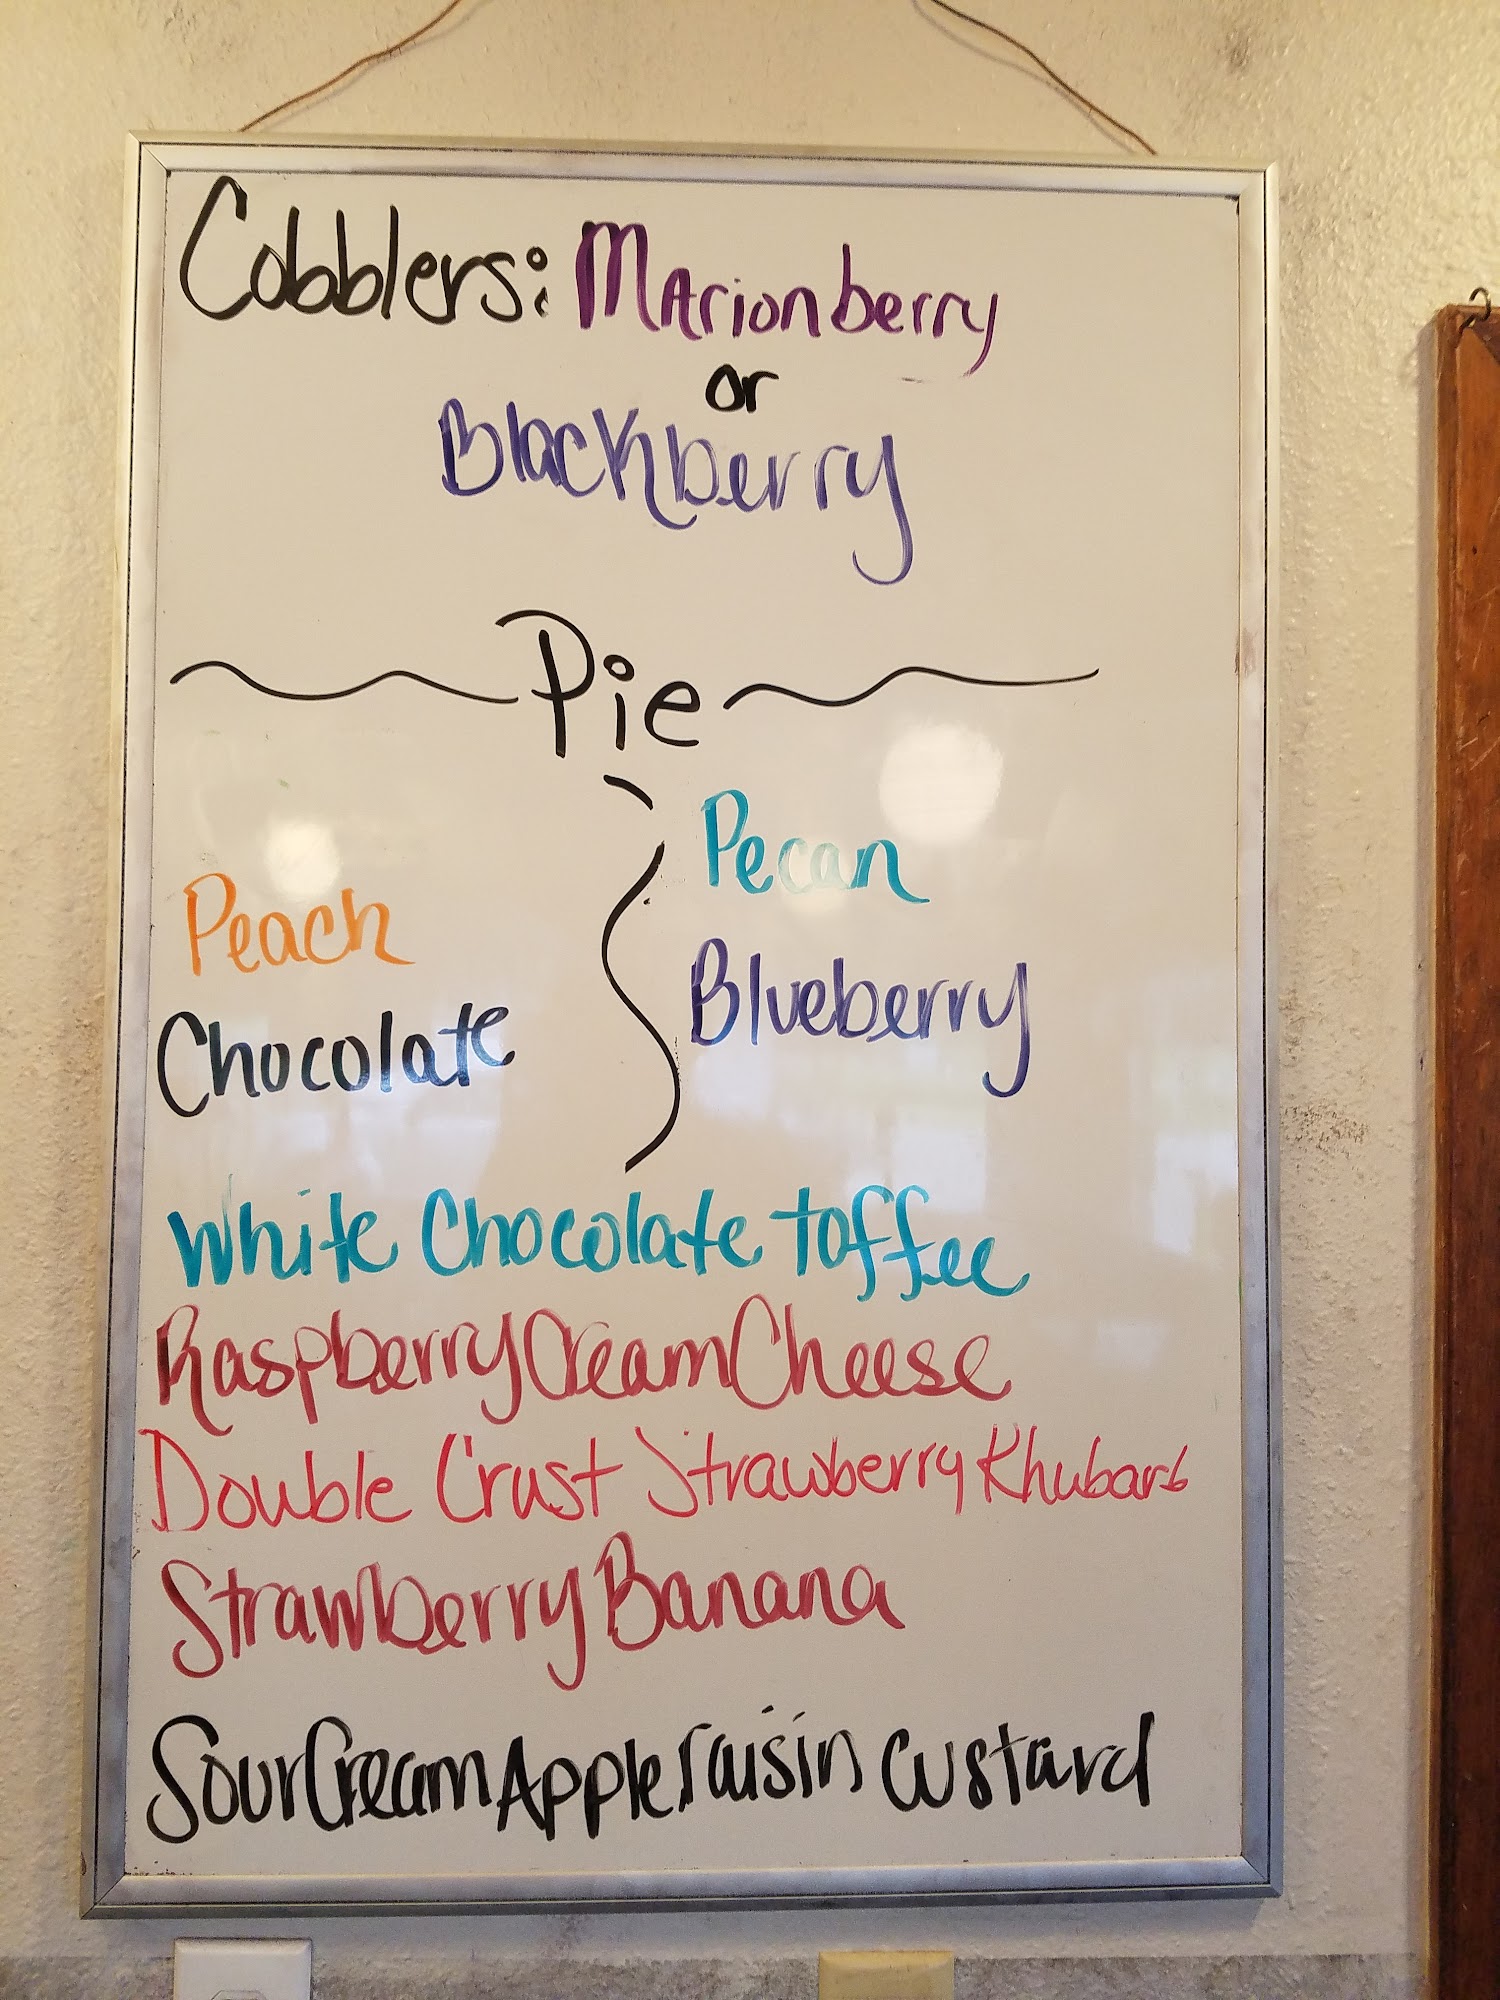 Cobblers: Marionberry
or
Blackberry
Pie
Peach
Chocolate
Pecan
Blueberry
White Chocolate toffee
Raspberry Cream Cheese
Double Crust Strawberry Rhubarb
Strawberry Banana
Sour Cream Apple raisin Custard